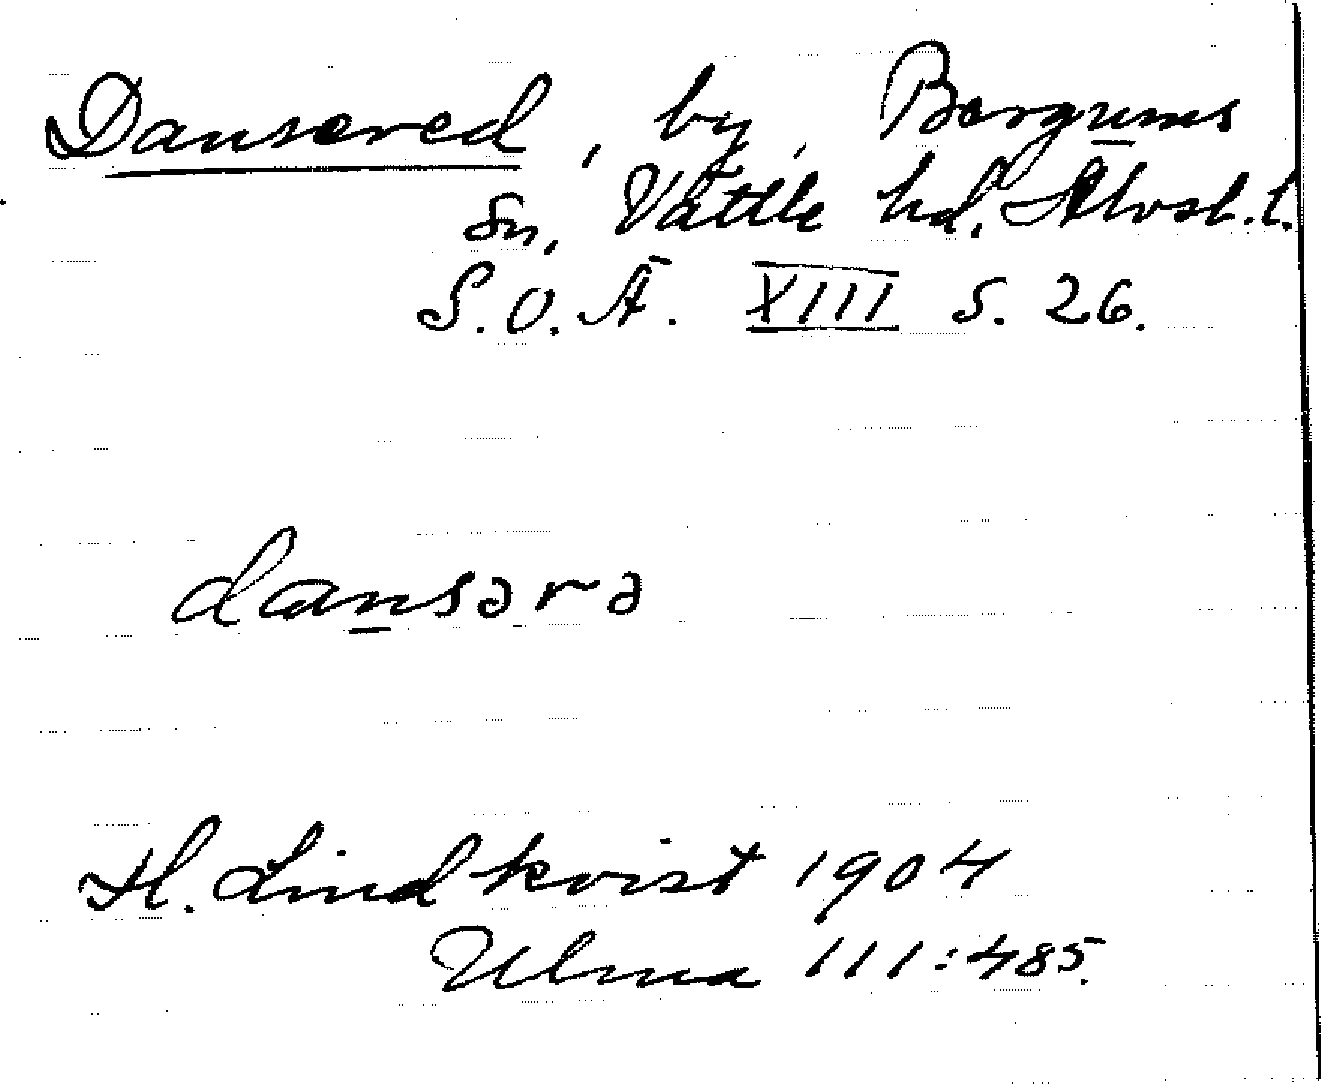 Dansered, by, Bergums
Sn, Vättle hd, Älvsb. l.
S.O.Ä. XIII s. 26.
dansərə
H. Lindkvist 1904
Ulma 111:485.